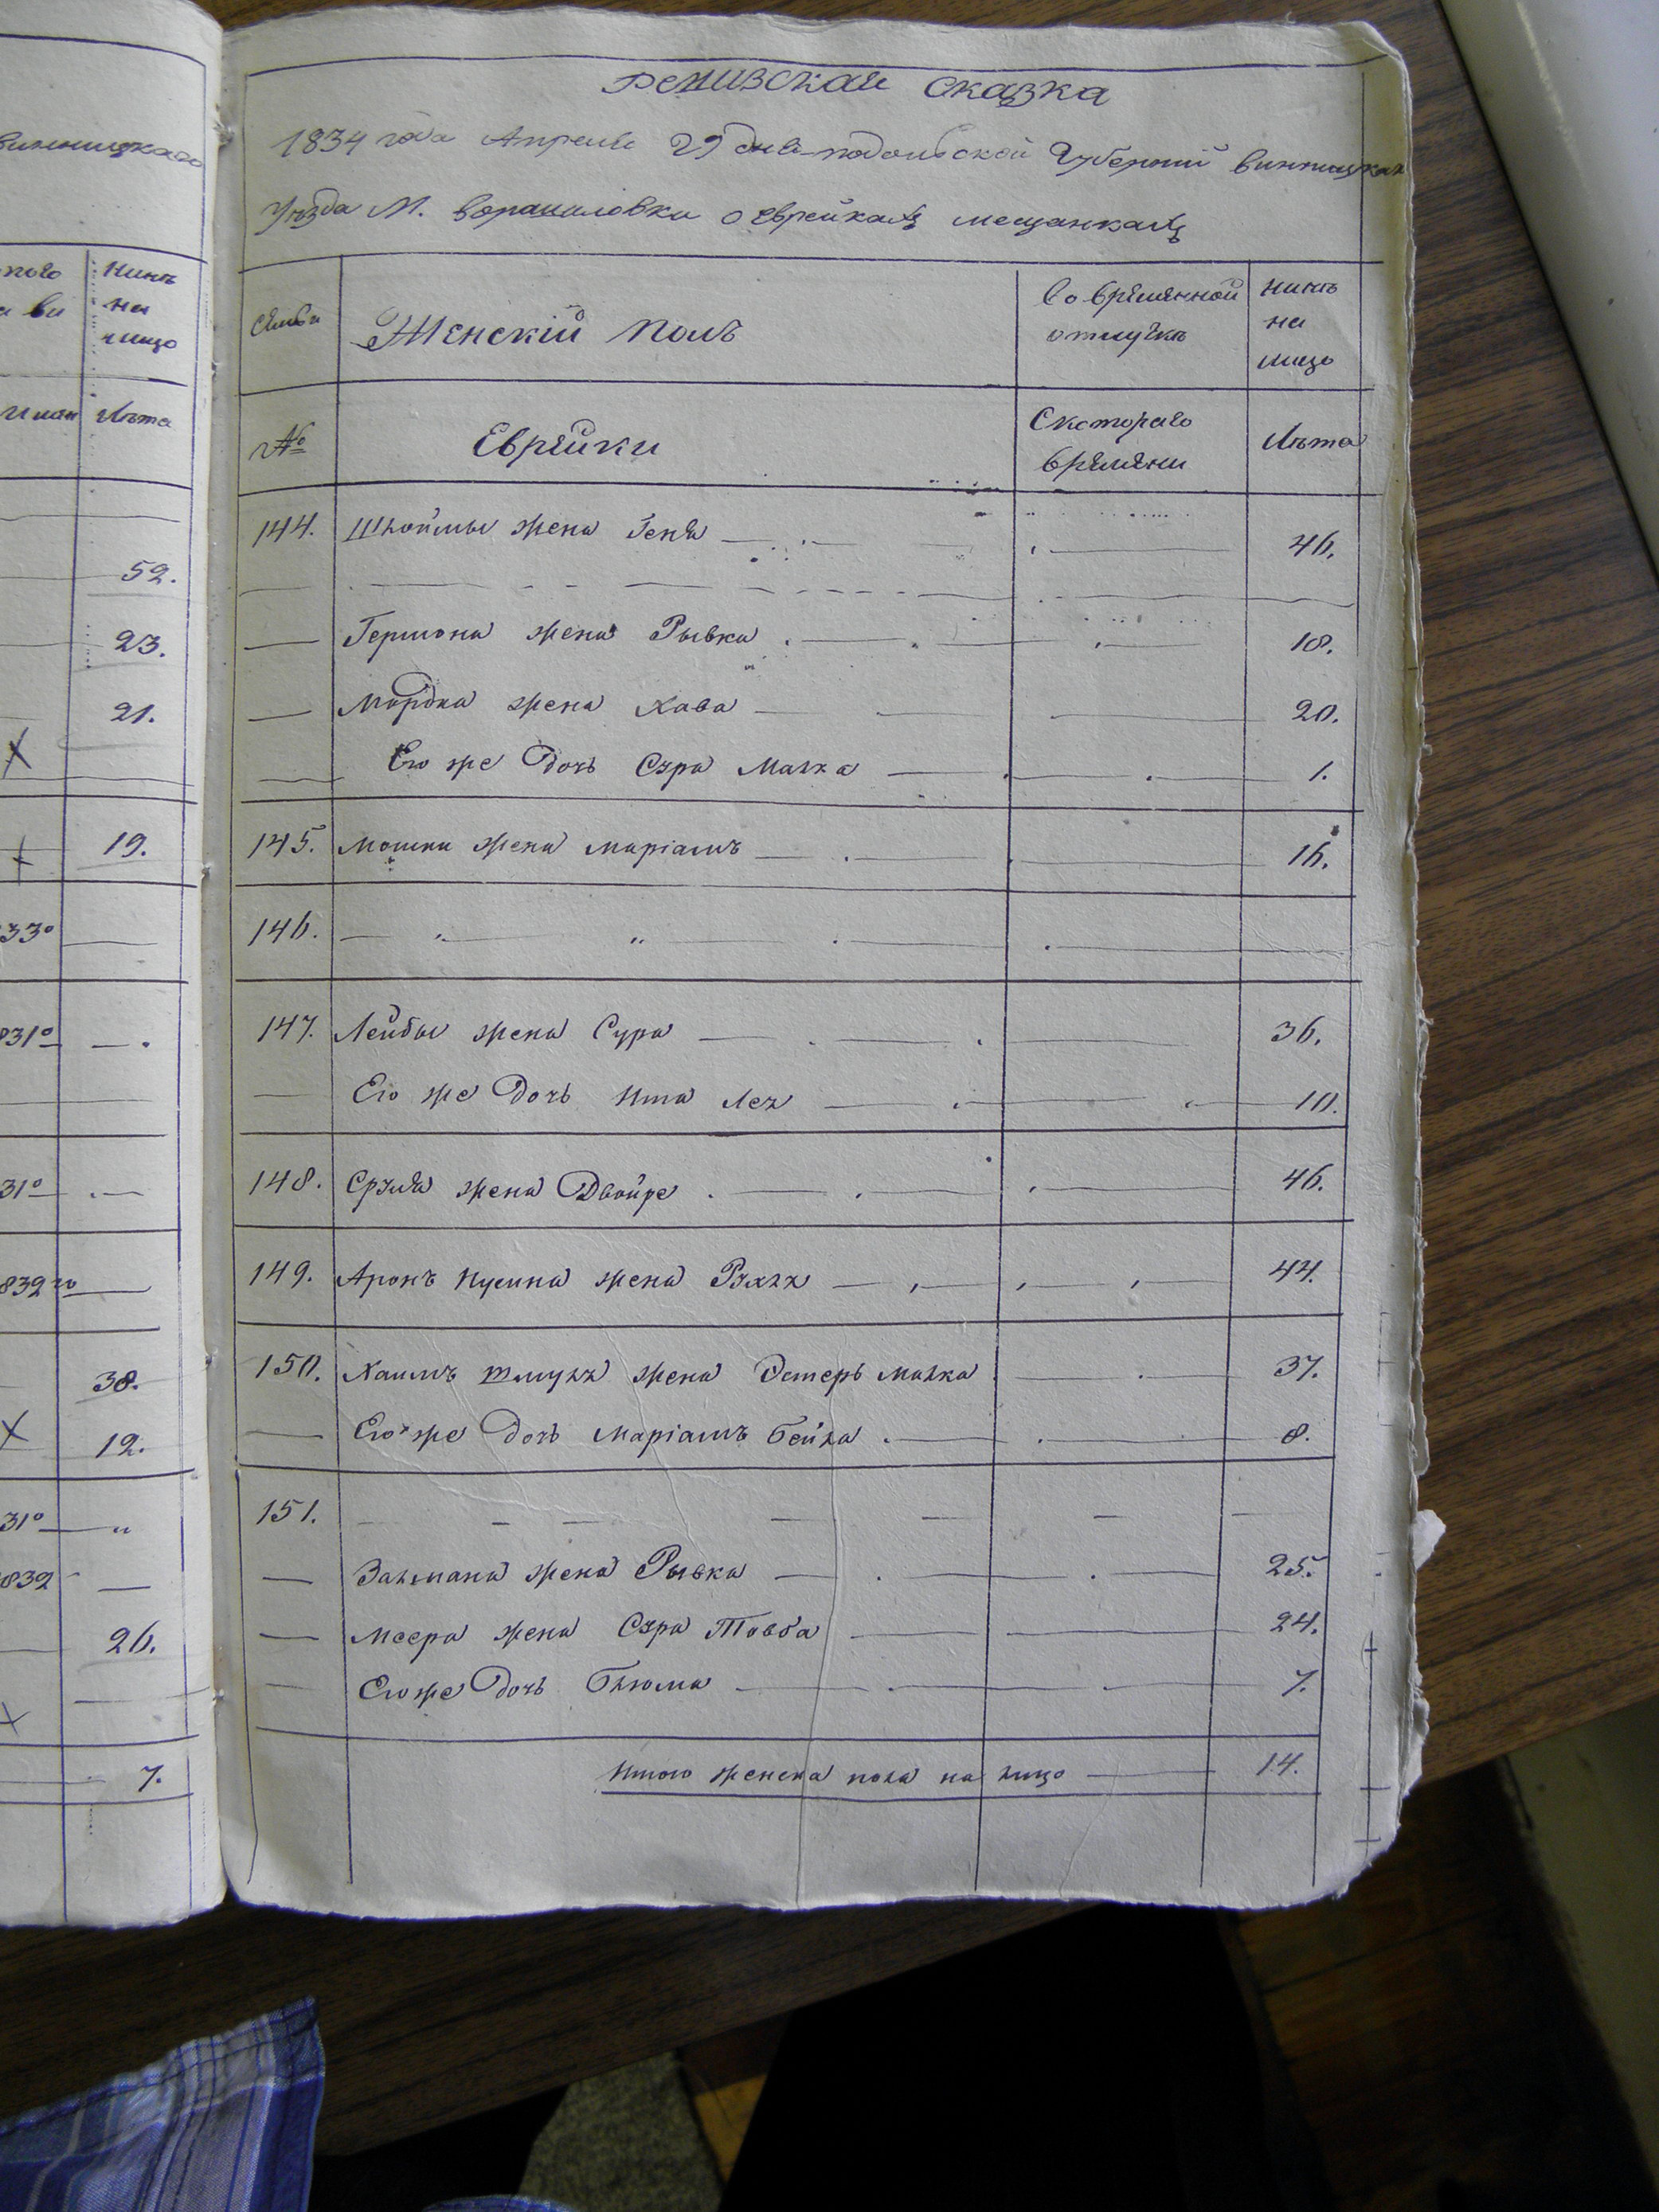 Ревизская сказка
1834 года Апреля 29 дня подольской Губернии винницкаго
Уезда М.Ворошиловки о еврейкахъ мещанкахъ
винницкаго
Семьи
Женскій полъ
во врѣмянной отлучкѣ
нинѣ на лицо
№
Еврѣйки
Скотораго врѣмяни
Лѣта
нинѣ на лицо
Лѣта
144. Шлоймы жена Геня 46.
Гершона жена Рывка 18.
Мордка жена Хава 20.
Его же дочь Сура Малка 1.
145. Мошка жена Маріамъ 16.
146.
147. Лейбы жена Сура 36.
Его же дочь Ита Лея 10.
148. Сруля жена Двойре 46.
149. Аронъ жена 44.
150. Хаимъ Шмуля жена Эстеръ малка 37.
Его же дочь Маріамъ Бейла 8.
151.
Залмана жена Рывка 25.
Меера жена Сура Товба 24.
Его же дочь Блюма 7.
Итого женска пола на лицо 14.
52.
23.
21.
19.
330
831о
31о
832го
38.
12.
31о
832
26.
7.